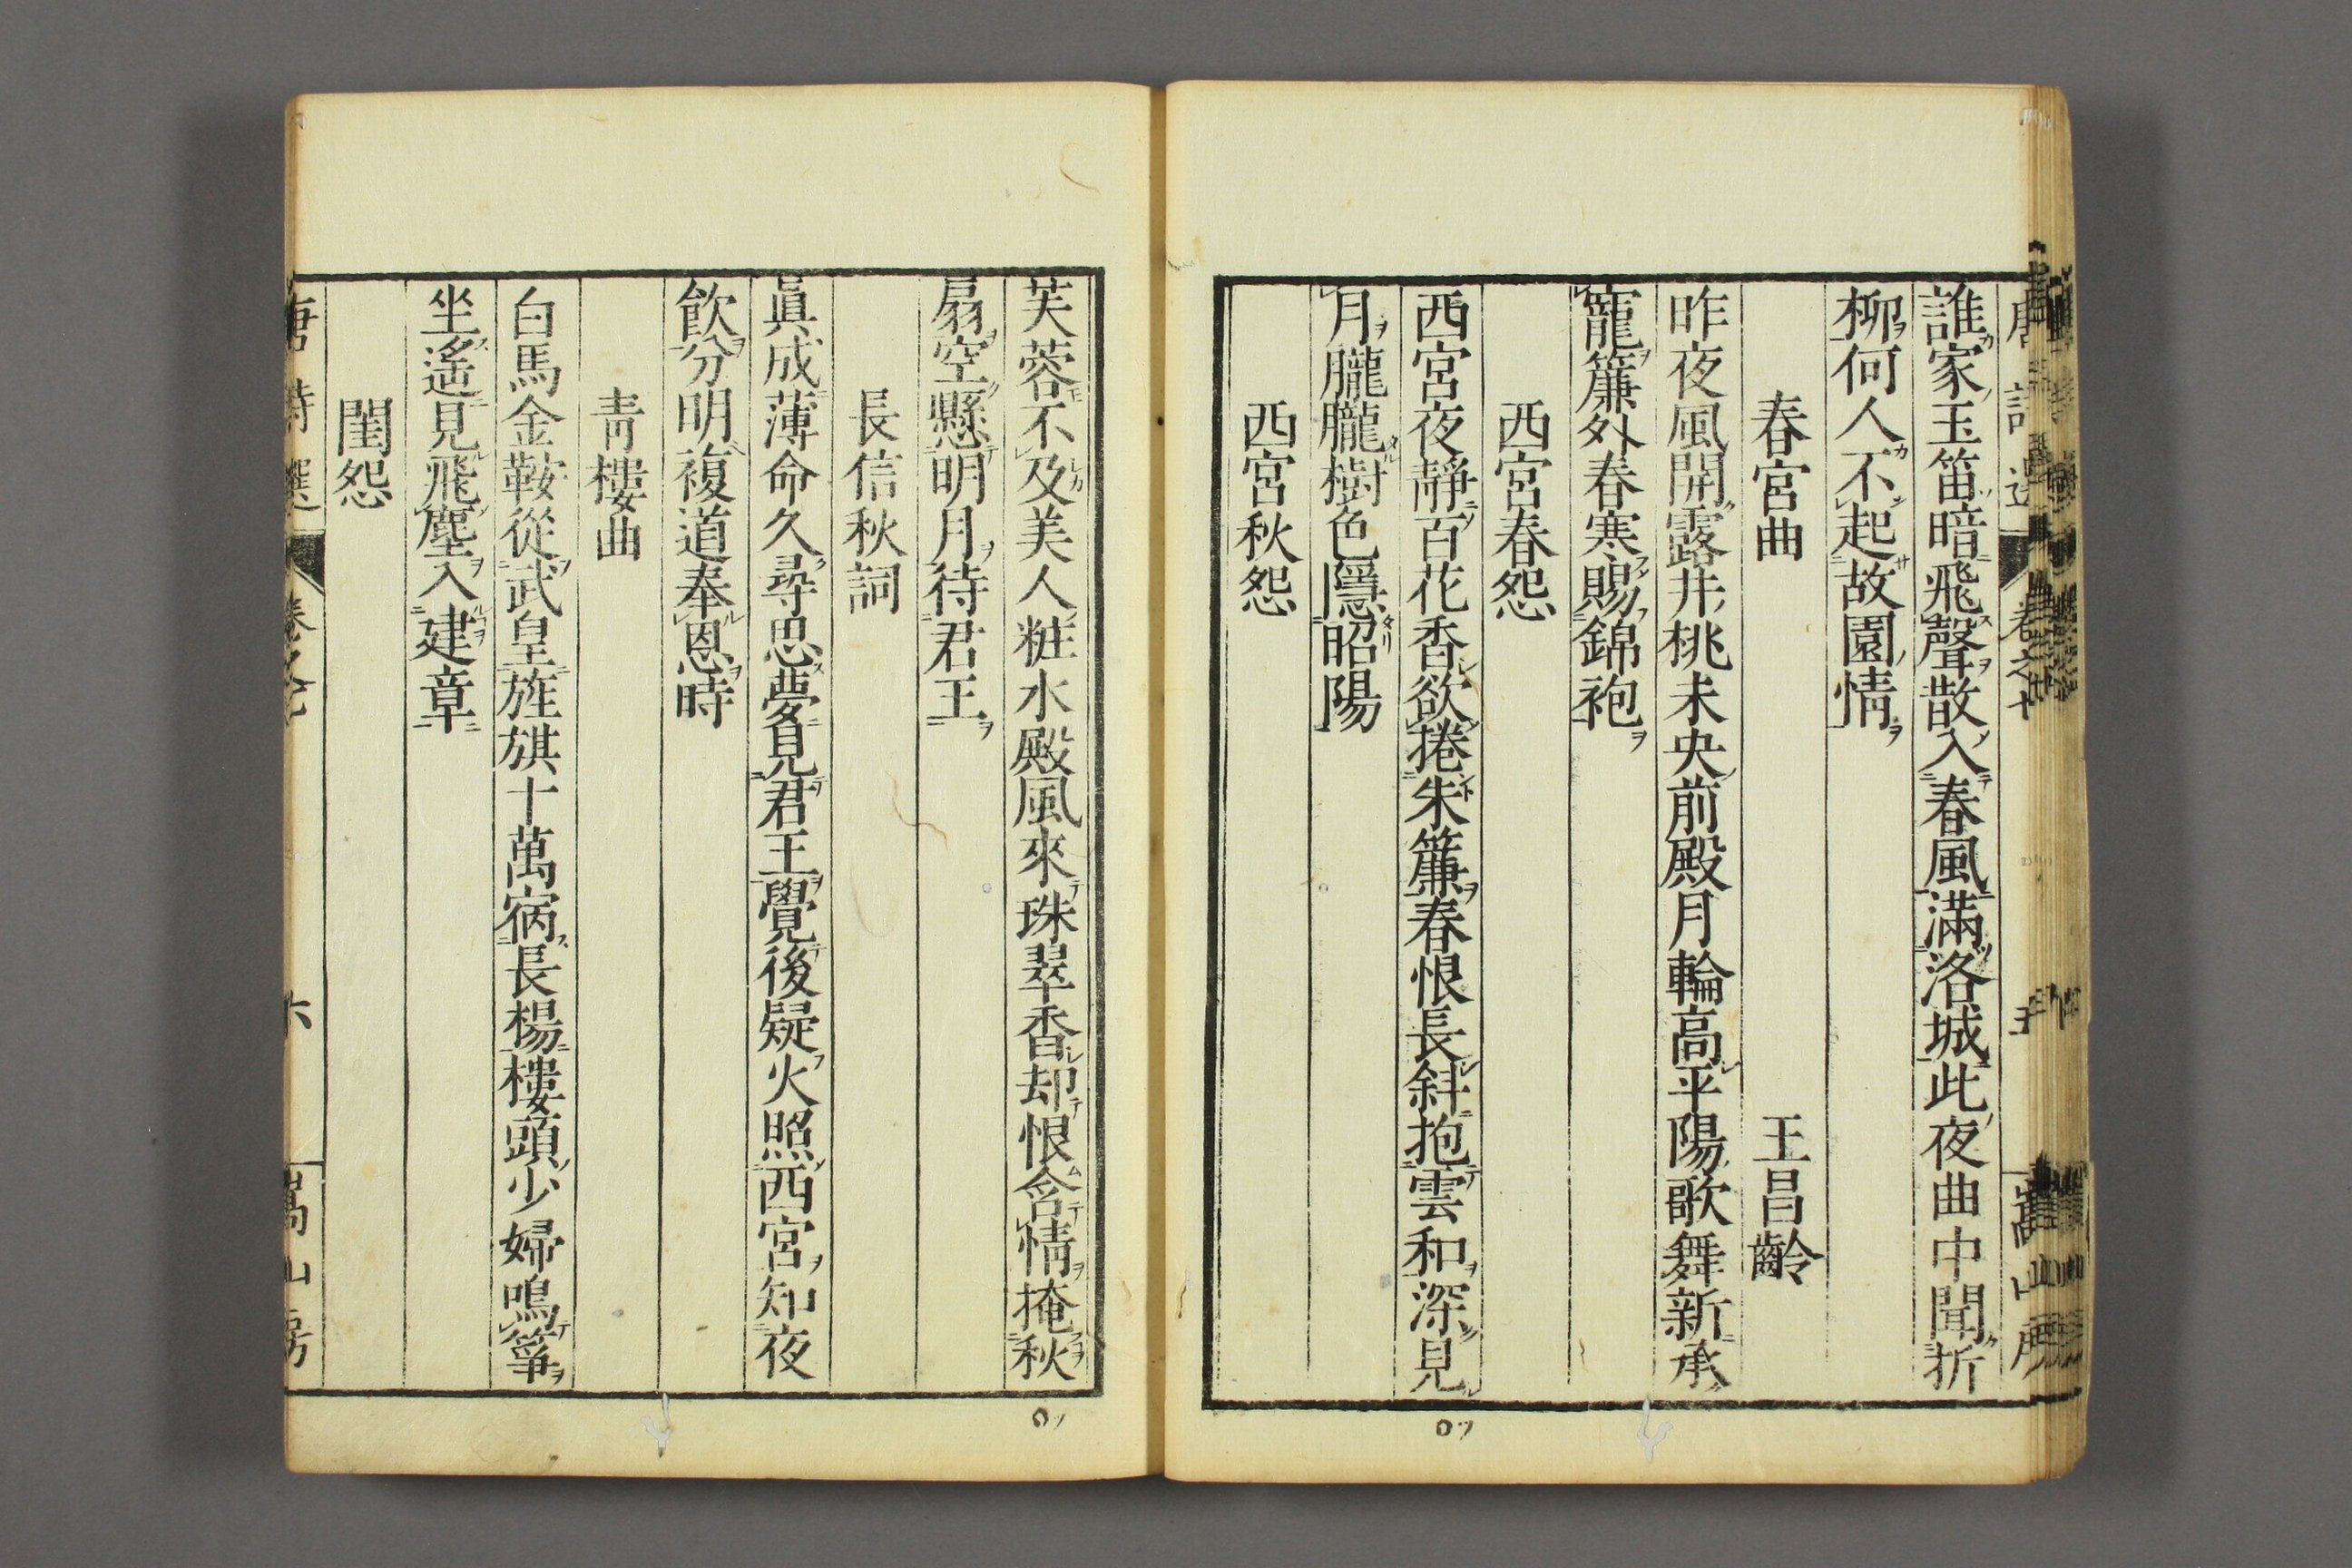 誰家玉笛暗飛聲散入春風滿洛城此夜曲中聞折
柳何人不起故園情
春宮曲　王昌齡
昨夜風開露井桃未央前殿月輪高平陽歌舞新承
寵簾外春寒賜錦袍
西宮春怨
西宮夜靜百花香欲捲朱簾春恨長斜抱雲和深見
月朧朧樹色隱昭陽
西宮秋怨
芙蓉不及美人粧水殿風來珠翠香却恨含情掩秋
扇空懸明月待君王
長信秋詞
眞成薄命久尋思夢見君王覺後疑火照西宮知夜
飮分明複道奉恩時
靑樓曲
白馬金鞍從武皇旌旗十萬宿長楊樓頭少婦鳴箏
坐遙見飛塵入建章
閨怨
唐詩選　卷之七　六　嵩山房